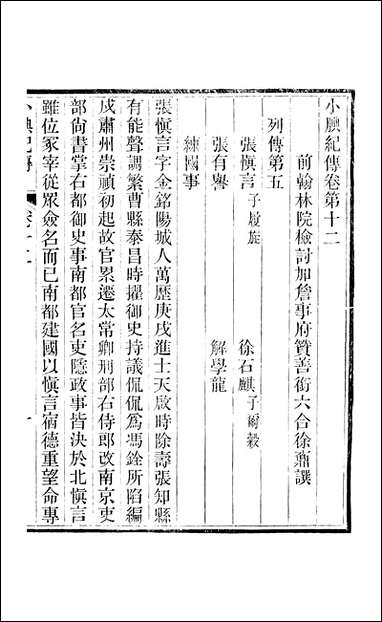 小腆紀傳卷第十二
前翰林院檢討加詹事府贊善銜六合徐鼒譔
列傳第五
張愼言子履旋
徐石麒子爾穀
張有譽
解學龍
練國事
張愼言字金銘陽城人萬歷庚戌進士天啟時除壽張知縣
有能聲調繁曹縣泰昌時擢御史持議侃侃爲馮銓所陷編
戍肅州崇禎初起故官累遷太常卿刑部右侍郎改南京吏
部尚書掌右都御史事南都官名吏隱政事皆決於北愼言
雖位冢宰從眾僉名而已南都建國以愼言宿德重望命專
小腆紀傳
卷十二
一